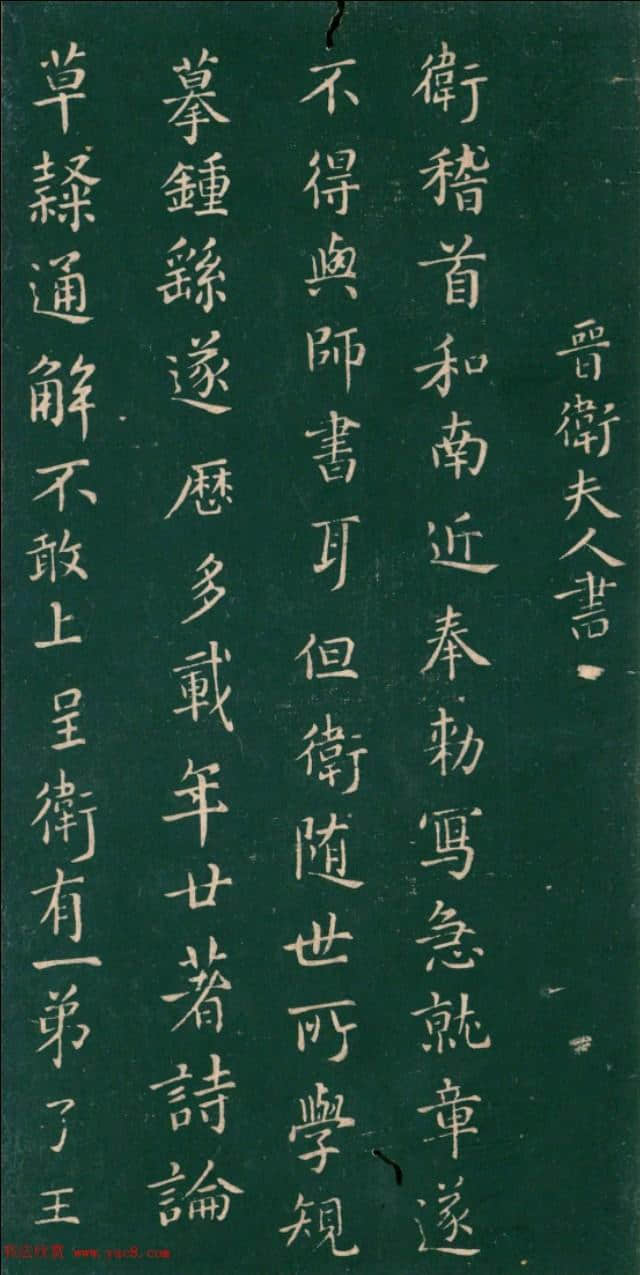 晉衛夫人書
衛稽首和南近奉勅寫急就章遂
不得與師書耳但衛随世所學規
摹鍾繇遂歷多載年廿著詩論
草隸通解不敢上呈衛有一弟子王
书法欣赏 www.yac8.com